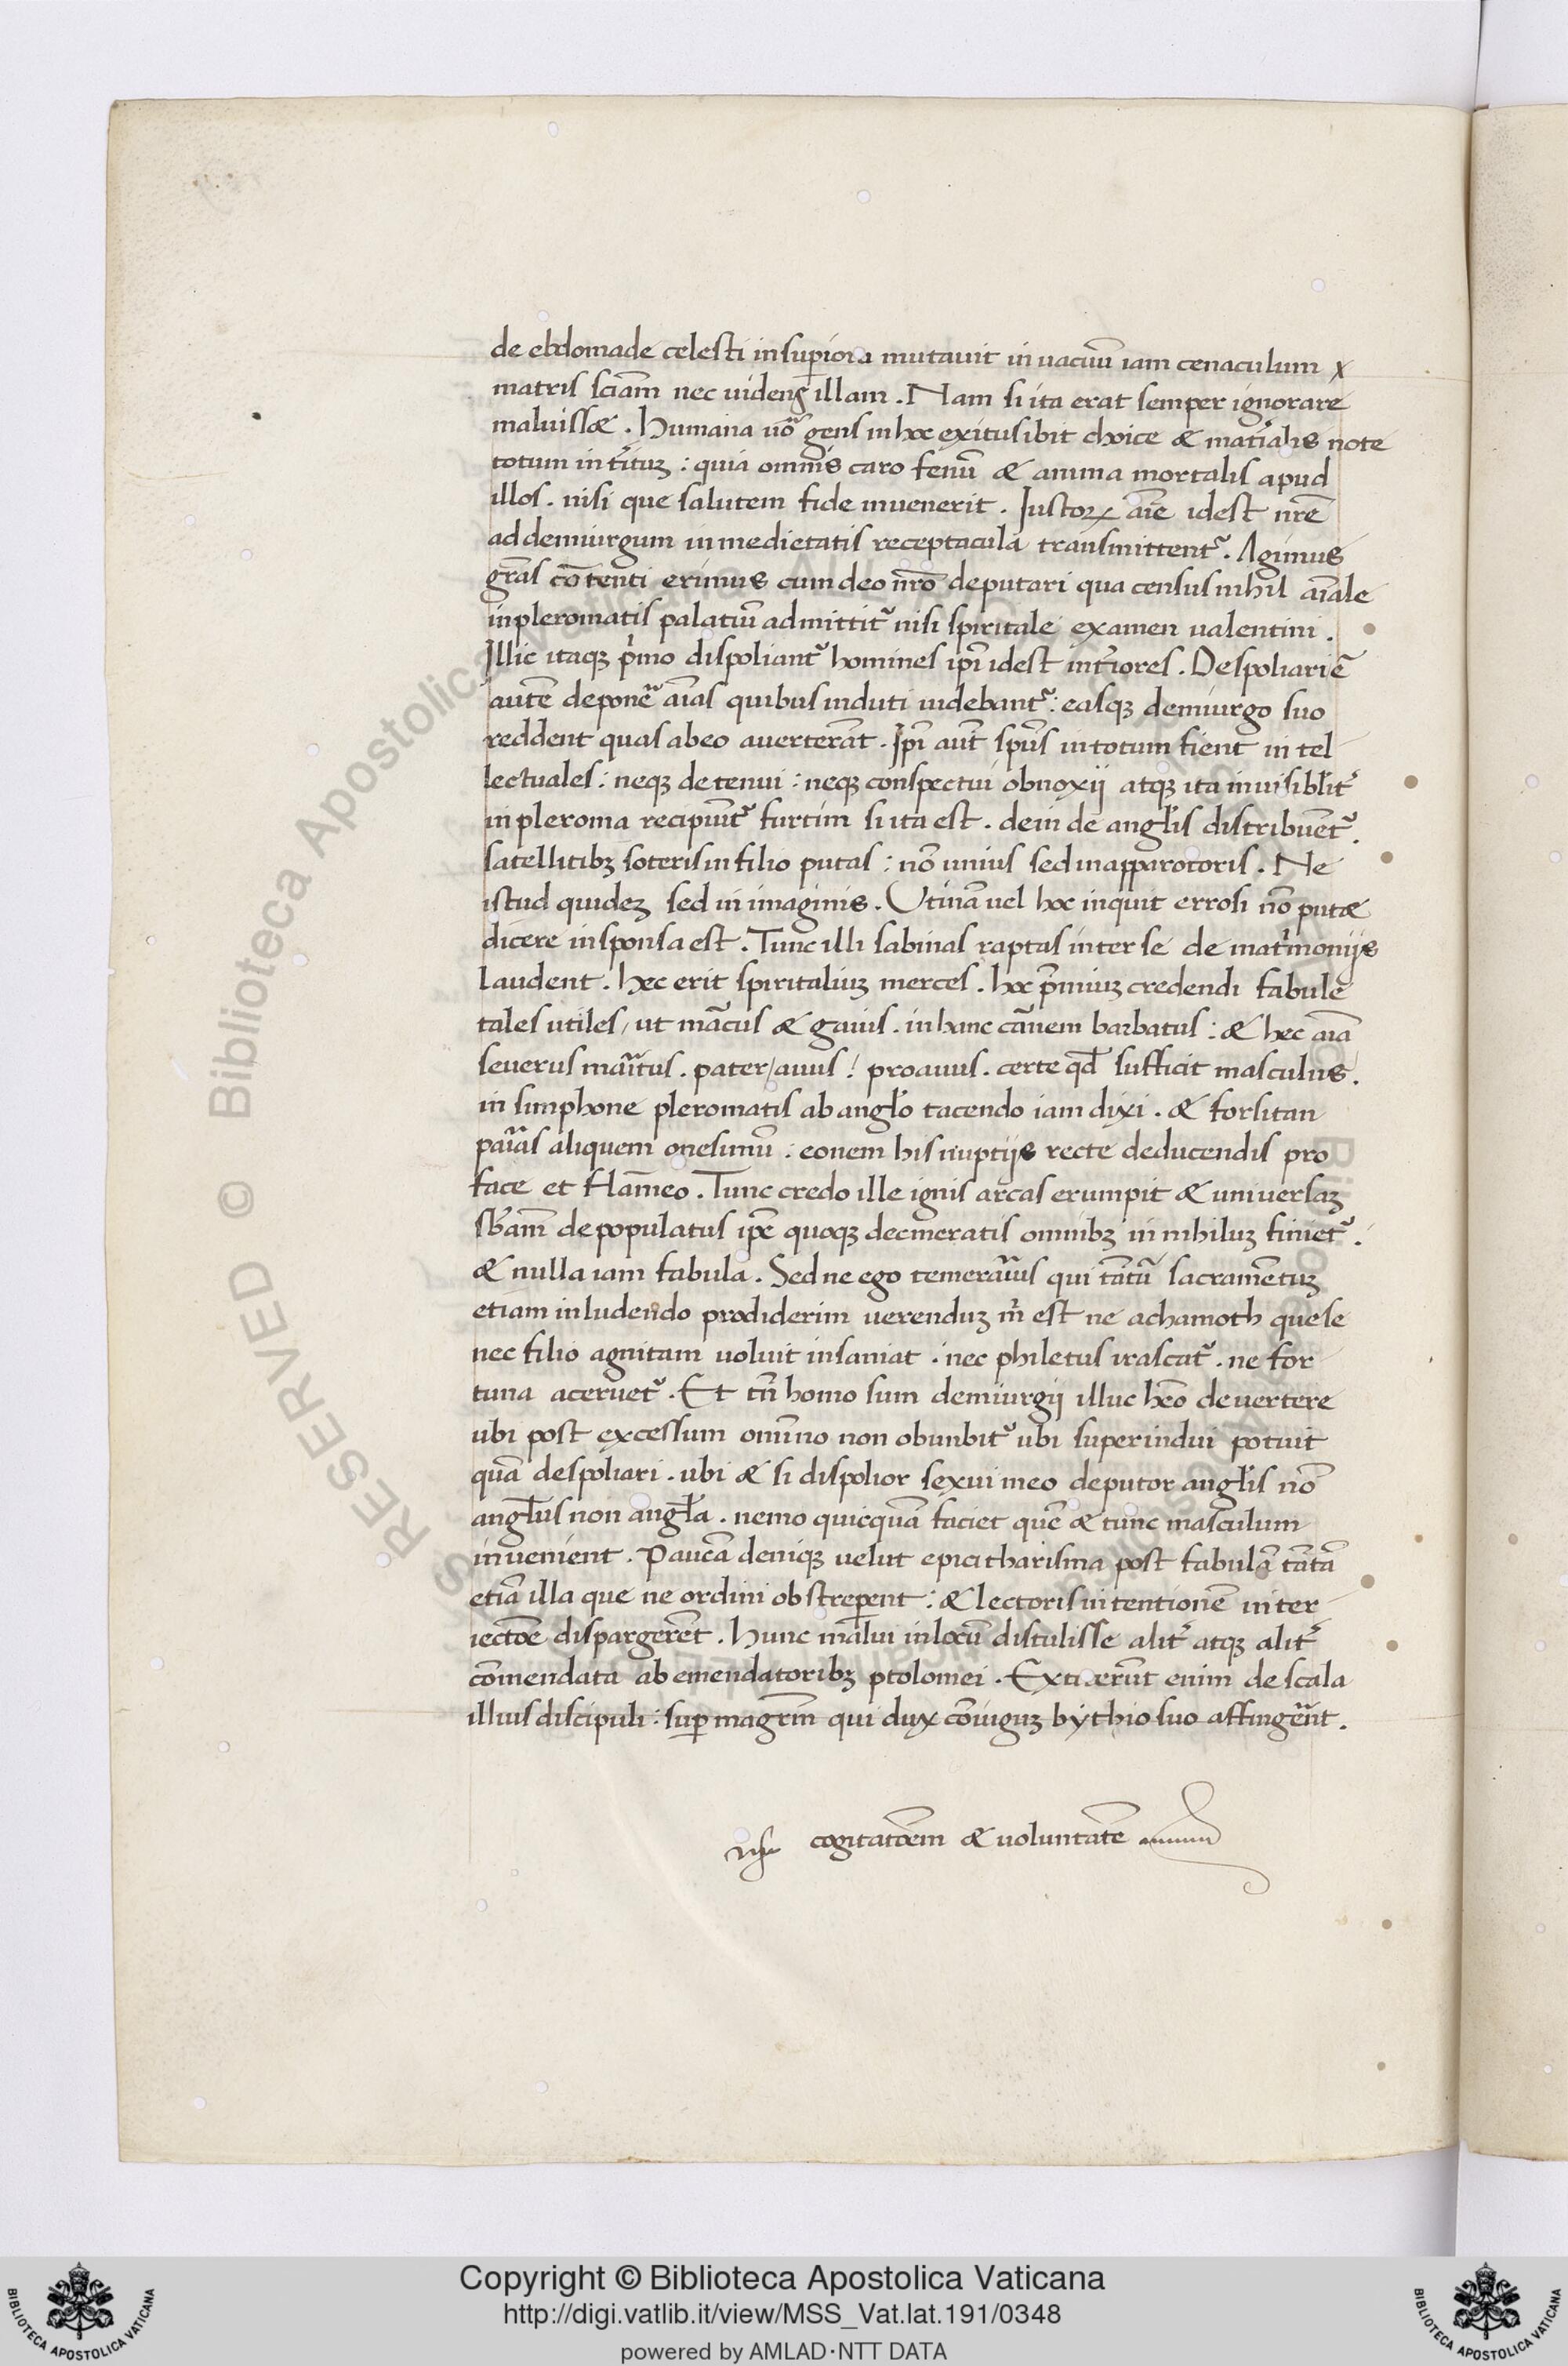 de ebdomade celesti in sup̱iora mutavit in vacuū iam cenaculum x
matris sciam̄ nec uidens illam . Nam si ita erat semper ignorare
maluisse . humana uō gens in hoc exitus ibit choice & mat̄ialis note
totum in t̄itūz : quia omnis caro fenū & anima mortalis apud
illos . nisi que salutem fide invenerit . Iustoꝝ aīe idest nr̄e
ad demiurgum in medietatis receptacula transmittentᷣ . Agimus
gr̄as cōtenti erimus cum deo nr̄o deputari qua census nihil aīale
in pleromatis palatiū admittitᷣ nisi spiritale examen valentini .
Illic itaqꝫ pͥmo dispoliantᷣ homines ip̄i idest int̄iores . Despoliari ē
autē deponē aīas quibus induti uidebantᷣ : easqꝫ demiurgo suo
reddent quas ab eo averterāt . Ip̄i aut̄ spūs in totum fient in tel
lectuales : neqꝫ detenui : neqꝫ conspectui obnoxij atqꝫ ita invisiblit̄ᷣ
in pleroma recipiūtᷣ furtim si ita est . dein de angl̄is distribuētᷣ .
satellitibꝫ soteris in filio putas : nō unius sed in apparotoris . Ne
istud quideꝫ sed in imaginis . Utinā vel hoc inquit errosi nō putæ
dicere in sponsa est . Tunc illi sabinas raptas inter se de matͥmonijs
laudent . hec erit spiritaliuꝫ merces . hoc p̄miuꝫ credendi fabule
tales utiles / ut mācus & gaius . in hanc cāuem barbatus : & hec aīa
severus maītus . pater / avus ! proavus . certe qd̄ sufficit masculus .
in simphone pleromatis ab angl̄o tacendo iam dixi . & forsitan
paīas aliquem onesimū : eonem his nuptijs recte deducendis pro
face et flam̄eo . Tunc credo ille ignis arcas erumpit & universaꝫ
sb̄am̄ depopulatus ip̄e quoqꝫ decineratis omnibꝫ in nihiluꝫ finietᷣ .
& nulla iam fabula . Sed ne ego temeraīus qui tātū sacramētuꝫ
etiam in ludendo prodiderim verenduꝫ m̄ est ne achamoth que se
nec filio agnitam voluit insaniat . nec philetus irascatᷣ . ne for
tuna acervetᷣ . Et tn̄ homo sum demiurgij illuc hēo devertere
ubi post excessum omīno non obunbitᷣ ubi superindui potuit
quā despoliari . ubi & si dispolior sexui meo deputor angl̄is nō
angl̄us non angl̄a . nemo quicquā faciet quē & tunc masculum
invenient . Paucā deniqꝫ velut epicitharisma post fabulā tātā
etiā illa que ne ordini obstrep̱ent : & lectoris intentionē inter
iectōe dispargerēt . hunc malui in locū distulisse alitᷣ atqꝫ alitᷣ
cōmendata ab emendatoribꝫ ptolomei . Extiterūt enim de scala
illius discipuli : sup̱ magr̄m qui dux cōiuguꝫ bythio suo affingēnt .
cogitatōem & voluntatē